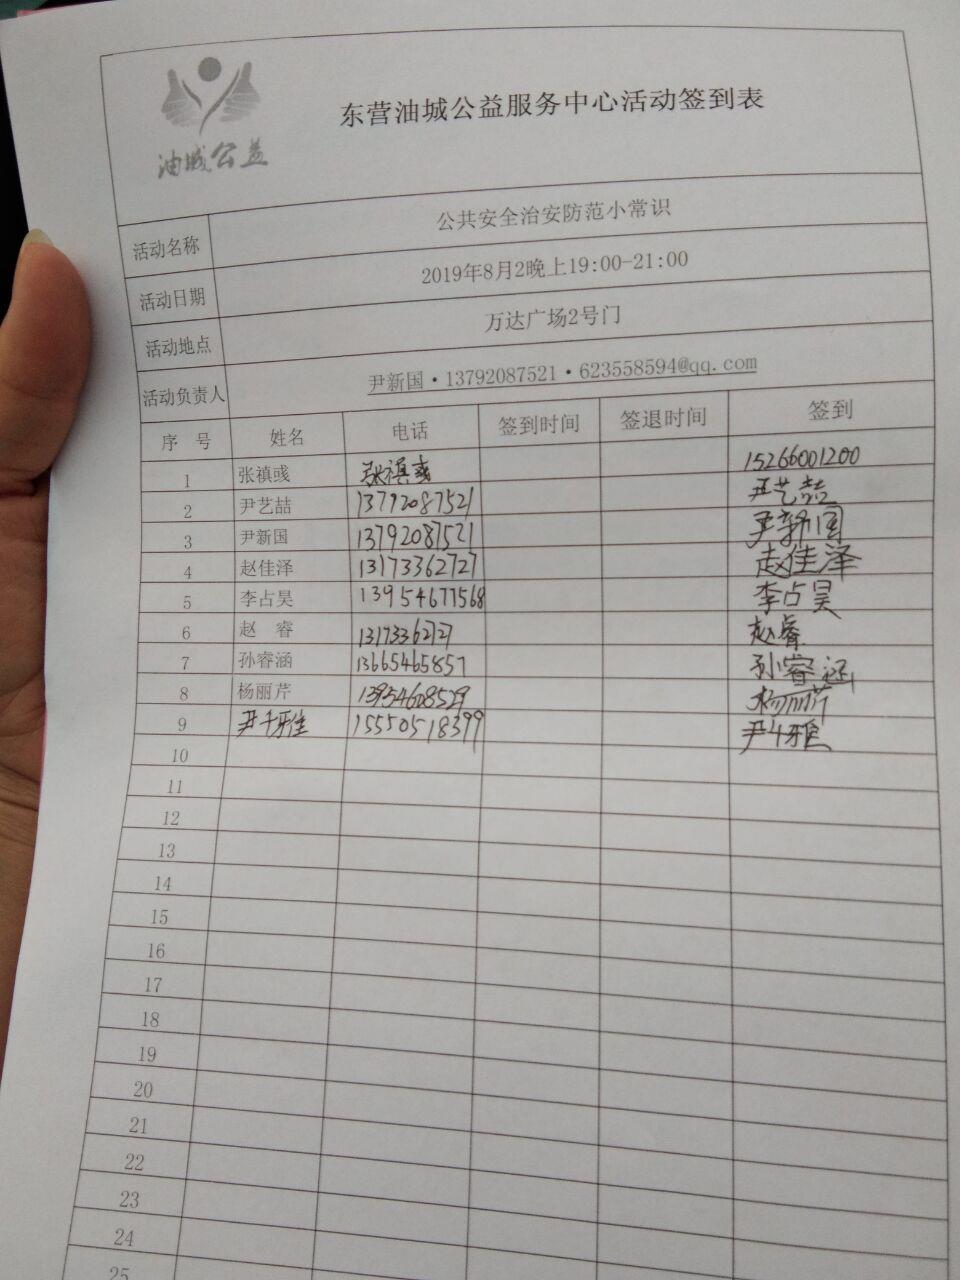 油城公益
东营油城公益服务中心活动签到表
活动名称 公共安全治安防范小常识
活动日期 2019年8月2晚上19:00-21:00
活动地点 万达广场2号门
活动负责人 尹新国·13792087521·623558594@qq.com
序 号 姓名 电话 签到时间 签退时间 签到
1 张禛彧 张禛彧 15266001200
2 尹艺喆 13792087521 尹艺喆
3 尹新国 13792087521 尹新国
4 赵佳泽 13173362727 赵佳泽
5 李占昊 13954677568 李占昊
6 赵 睿 13173362727 赵睿
7 孙睿涵 13665465857 孙睿涵
8 杨丽芹 13954608529 杨丽芹
9 尹千雅 15550518399 尹千雅
10
11
12
13
14
15
16
17
18
19
20
21
22
23
24
25